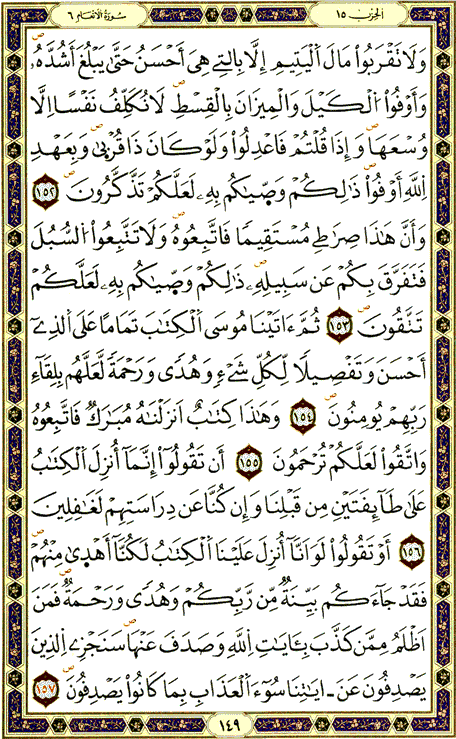 الحزب ١٥
سورة الأنعام ٦
وَلَا تَقْرَبُوا۟ مَالَ اَ۬لْيَتِيمِ إِلَّا بِالتِے هِيَ أَحْسَنُ حَتَّىٰ يَبْلُغَ أَشُدَّهُۥۖ
وَأَوْفُوا۟ اُ۬لْكَيْلَ وَالْمِيزَانَ بِالْقِسْطِۖ لَا نُكَلِّفُ نَفْساً اِلَّا
وُسْعَهَاۖ وَإِذَا قُلْتُمْ فَاعْدِلُوا۟ وَلَوْ كَانَ ذَا قُرْب۪ىٰۖ وَبِعَهْدِ
اِ۬للَّهِ أَوْفُوا۟ۖ ذَٰلِكُمْ وَصّ۪يٰكُم بِهِۦ لَعَلَّكُمْ تَذَّكَّرُونَۖ ١٥٢
وَأَنَّ هَٰذَا صِرَٰطِے مُسْتَقِيماً فَاتَّبِعُوهُۖ وَلَا تَتَّبِعُوا۟ اُ۬لسُّبُلَ
فَتَفَرَّقَ بِكُمْ عَن سَبِيلِهِۦۖ ذَٰلِكُمْ وَصّ۪يٰكُم بِهِۦ لَعَلَّكُمْ
تَتَّقُونَۖ ١٥٣ ثُمَّ ءَاتَيْنَا مُوسَى اَ۬لْكِتَٰبَ تَمَاماً عَلَى اَ۬لذِےٓ
أَحْسَنَ وَتَفْصِيلاً لِّكُلِّ شَےْءٍ وَهُدىً وَرَحْمَةً لَّعَلَّهُم بِلِقَآءِ
رَبِّهِمْ يُومِنُونَۖ ١٥٤ وَهَٰذَا كِتَٰبٌ اَنزَلْنَٰهُ مُبَٰرَكٌ فَاتَّبِعُوهُ
وَاتَّقُوا۟ لَعَلَّكُمْ تُرْحَمُونَ ١٥٥ أَن تَقُولُوٓا۟ إِنَّمَآ أُنزِلَ اَ۬لْكِتَٰبُ
عَلَىٰ طَآئِفَتَيْنِ مِن قَبْلِنَا وَإِن كُنَّا عَن دِرَاسَتِهِمْ لَغَٰفِلِينَ
١٥٦ أَوْ تَقُولُوا۟ لَوَ اَنَّآ أُنزِلَ عَلَيْنَا اَ۬لْكِتَٰبُ لَكُنَّآ أَهْد۪ىٰ مِنْهُمْۖ
فَقَدْ جَآءَكُم بَيِّنَةٌ مِّن رَّبِّكُمْ وَهُدىً وَرَحْمَةٌۖ فَمَنَ
اَظْلَمُ مِمَّن كَذَّبَ بِـَٔايَٰتِ اِ۬للَّهِ وَصَدَفَ عَنْهَاۖ سَنَجْزِے اِ۬لذِينَ
يَصْدِفُونَ عَنَ اٰيَٰتِنَا سُوٓءَ اَ۬لْعَذَابِ بِمَا كَانُوا۟ يَصْدِفُونَۖ ١٥٧
١٤٩